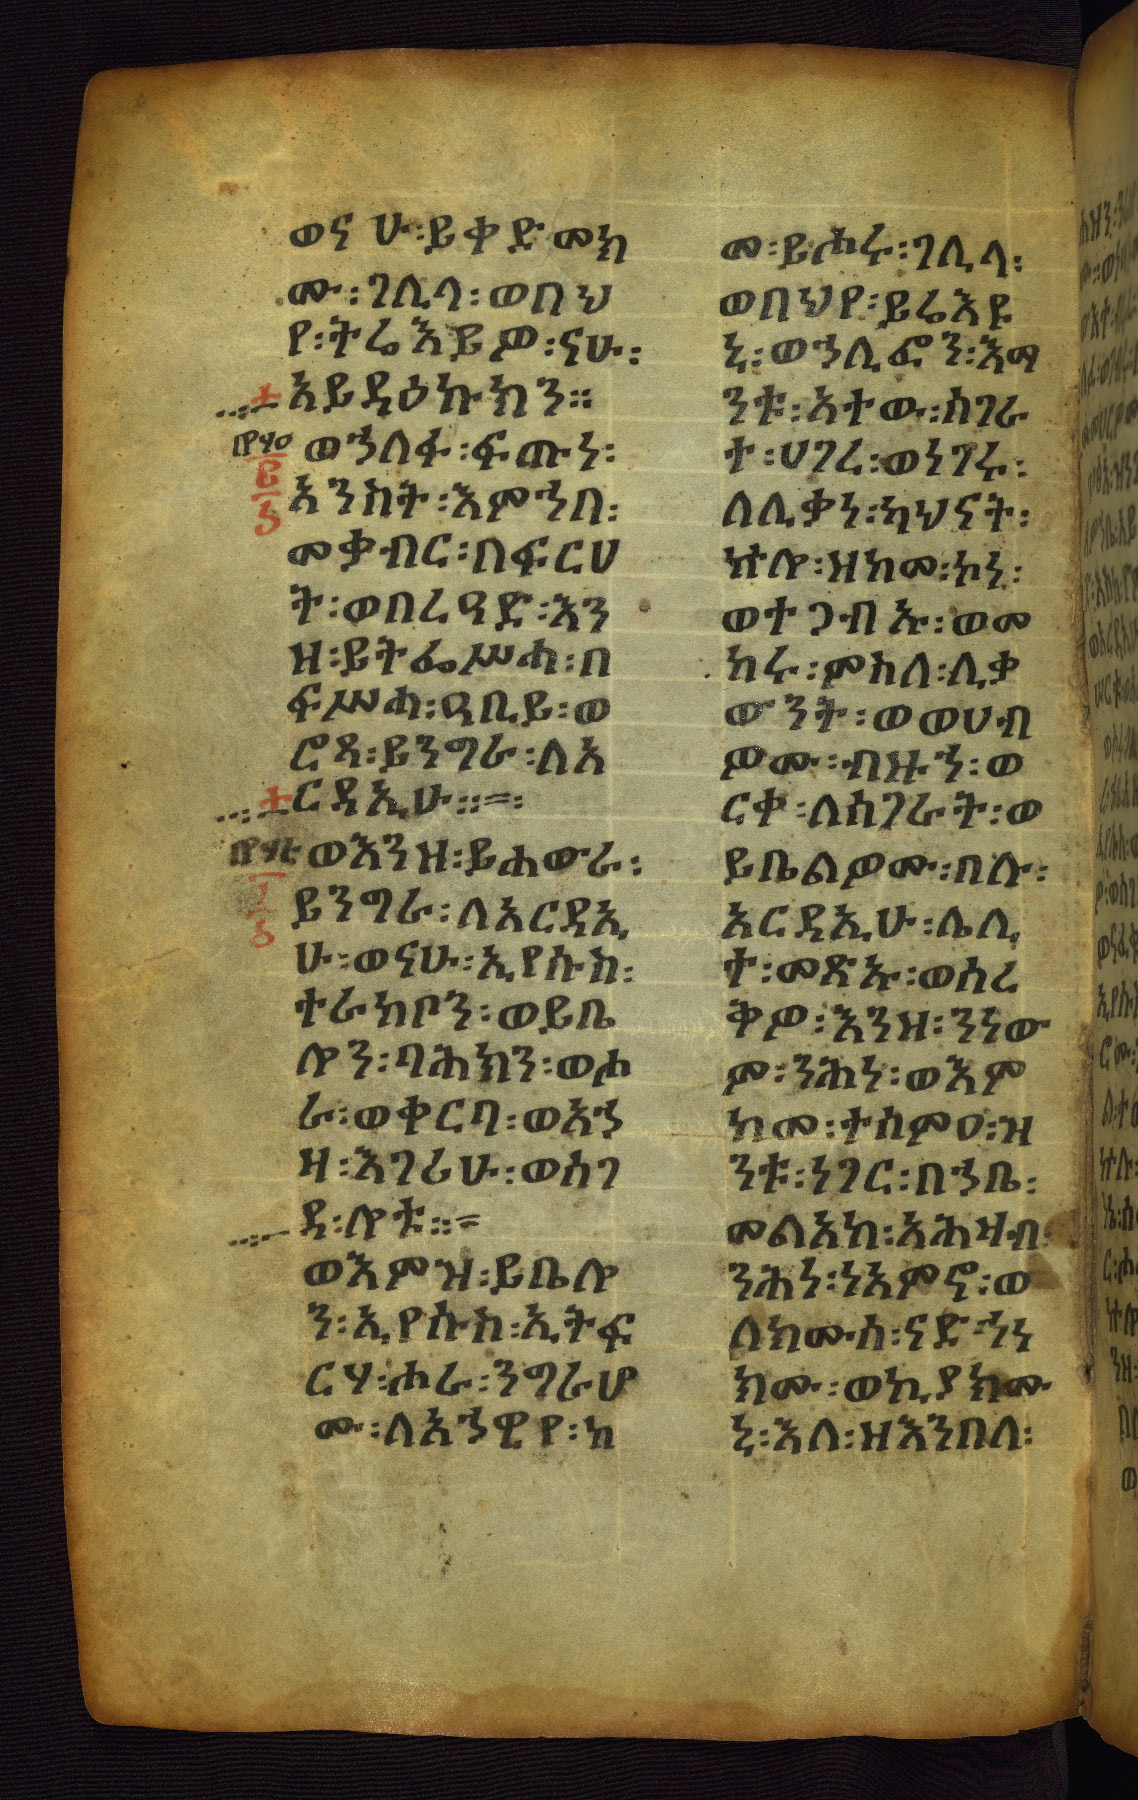 ወና ሁ፡ይቀድመክ
ሙ፡ገሊላ፡ወበህ
የ፡ትሬእይዎ፡ናሁ፡
አይዳዕኩክን፡፡
ወኀለፋ፡ፍጡነ፡
እንከት፡እምኀበ፡
መቃብር፡በፍርሀ
ት፡ወበረዓድ፡እን
ዘ፡ይትፌሥሓ፡በ
ፍሥሓ፡ዓቢይ፡ወ
ሮጻ፡ይንግራ፡ለአ
ርዳኢሁ፡፡=፡
ወእንዘ፡ይሐውራ፡
ይንግራ፡ለአርዳኢ
ሁ፡ወናሁ፡ኢየሱስ፡
ተራከቦን፡ወይቤ
ሎን፡ባሕክን፡ወሖ
ራ፡ወቀርባ፡ወአኀ
ዛ፡እገሪሁ፡ወሰገ
ዳ፡ሎቱ፡፡=
ወእምዝ፡ይቤሎ
ን፡ኢየሱስ፡ኢትፍ
ርሃ፡ሑራ፡ንግራሆ
ሙ፡ለአኀዊየ፡ከ
መ፡ይሑሩ፡ገሊላ፡
ወበህየ፡ይሬእዩ
ኒ፡ወኀሊፎን፡እማ
ንቱ፡አተው፡ሰገራ
ተ፡ሀገረ፡ወነገሩ፡
ለሊቃነ፡ካህናት፡
ኵሎ፡ዘከመ፡ኮነ፡
ወተጋብኡ፡ወመ
ከሩ፡ምስለ፡ሊቃ
ውንት፡ወወሀብ
ዎሙ፡ብዙኀ፡ወ
ርቀ፡ለሰገራት፡ወ
ይቤልዎሙ፡በሉ፡
አርዳኢሁ፡ሌሊ
ተ፡መጽኡ፡ወሰረ
ቅዎ፡እንዘ፡ንነው
ም፡ንሕነ፡ወእም
ከመ፡ተሰምዐ፡ዝ
ንቱ፡ነገር፡በኀቤ፡
መልአከ፡አሕዛብ፡
ንሕነ፡ነአምኖ፡ወ
ለክሙሰ፡ናድኅነ
ክሙ፡ወኪያክሙ
ኒ፡እለ፡ዘእንበለ፡